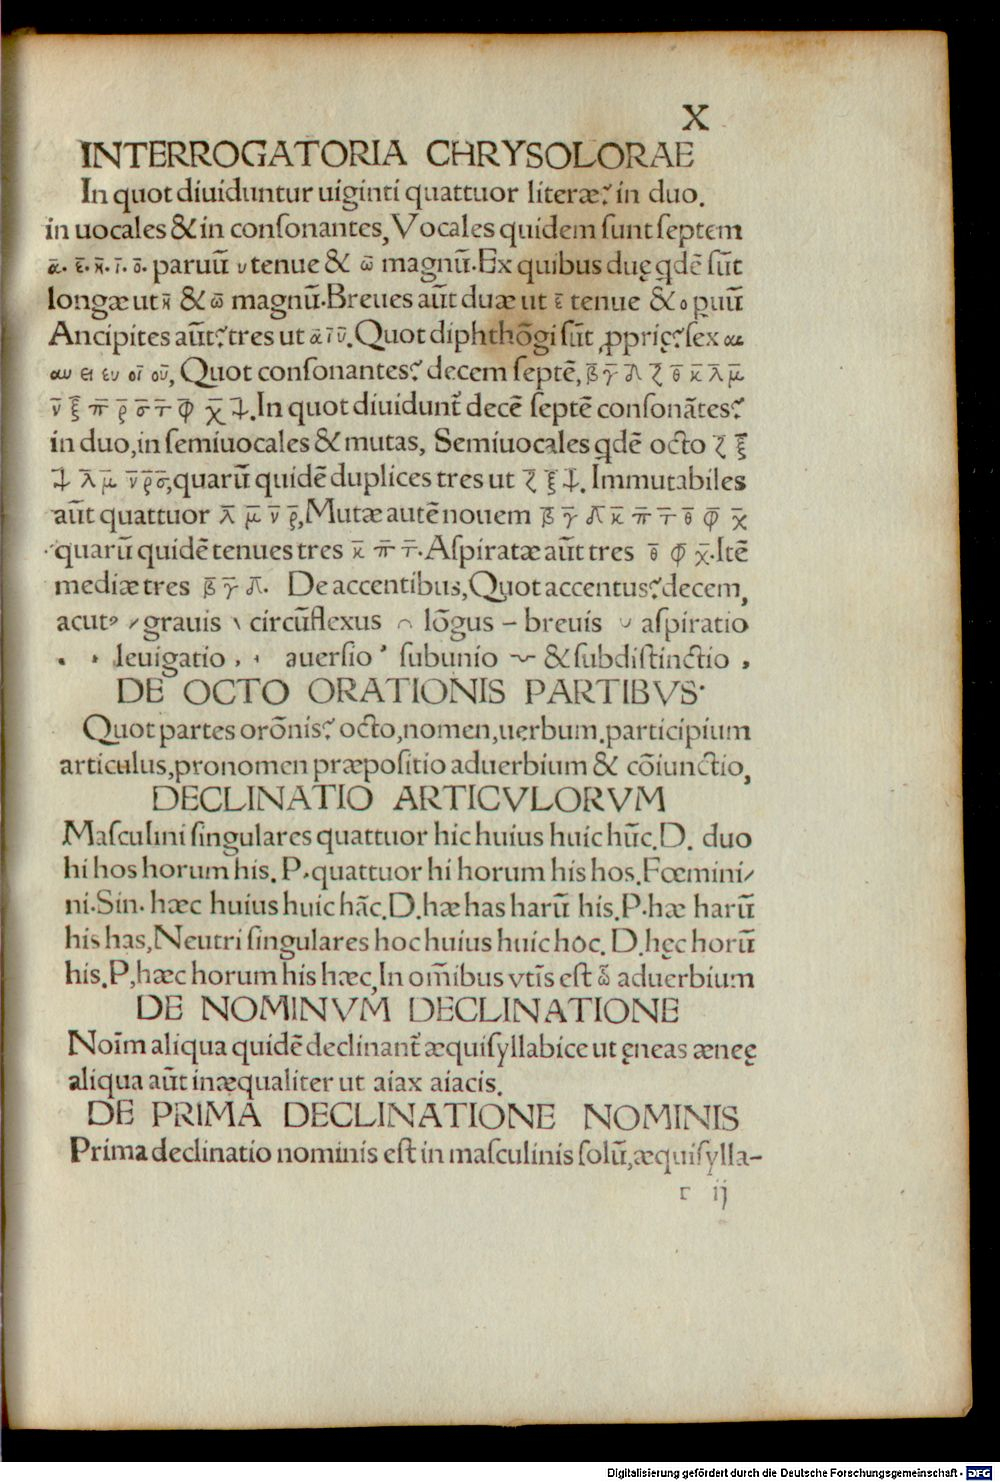 X
INTERROGATORIA CHRYSOLORAE
In quot diuiduntur uiginti quattuor literæ? in duo.
in uocales & in conſonantes, Vocales quidem ſunt ſeptem
ᾱ. ε̄. η̄. ῑ. ο̄. paruū υ tenue & ω̄ magnū. Ex quibus duę qdē ſūt
longæ ut η̄ & ω̄ magnū. Breues aūt duæ ut ε̄ tenue & ο ꝑuū
Ancipites aūt? tres ut ᾱ ῑ ῡ. Quot diphthōgi ſūt ꝓprię? ſex αι
αυ ει ευ οῑ οῡ, Quot conſonantes? decem ſeptē, β̄ γ̄ δ̄ ζ θ̄ κ̄ λ̄ μ̄
ν̄ ξ̄ π̄ ρ̄ σ̄ τ̄ φ̄ χ̄ ψ̄. In quot diuidunt̄ decē ſeptē conſonātes?
in duo, in ſemiuocales & mutas, Semiuocales qdē octo ζ ξ̄
ψ̄ λ̄ μ̄ ν̄ ρ̄ σ̄, quarū quidē duplices tres ut ζ ξ̄ ψ̄. Immutabiles
aūt quattuor λ̄ μ̄ ν̄ ρ̄, Mutæ autē nouem β̄ γ̄ δ̄ κ̄ π̄ τ̄ θ̄ φ̄ χ̄
quarū quidē tenues tres κ̄ π̄ τ̄. Aſpiratæ aūt tres θ̄ φ̄ χ̄. Itē
mediæ tres β̄ γ̄ δ̄. De accentibus, Quot accentus? decem,
acutꝰ ⸝ grauis \ circūflexus ⌒ lōgus – breuis ◡ aſpiratio
leuigatio , auerſio ʼ ſubunio ⁓ & ſubdiſtinctio ,
DE OCTO ORATIONIS PARTIBVS.
Quot partes orōnis? octo, nomen, uerbum. participium
articulus, pronomen præpoſitio aduerbium & cōiunctio,
DECLINATIO ARTICVLORVM
Maſculini ſingulares quattuor hic huius huic hūc. D. duo
hi hos horum his. P. quattuor hi horum his hos. Fœmini⸗
ni. Sin. hæc huius huic hāc. D. hæ has harū his. P. hæ harū
his has, Neutri ſingulares hoc huius huic hoc. D. hęc horū
his. P, hæc horum his hæc, In om̄ibus vtīs eſt ω̄ aduerbium
DE NOMINVM DECLINATIONE
Noīm aliqua quidē declinant̄ æquiſyllabice ut ęneas æneę
aliqua aūt inæqualiter ut aiax aiacis.
DE PRIMA DECLINATIONE NOMINIS
Prima declinatio nominis eſt in maſculinis ſolū, æquiſylla-
r ij
Digitalisierung gefördert durch die Deutsche Forschungsgemeinschaft - DFG